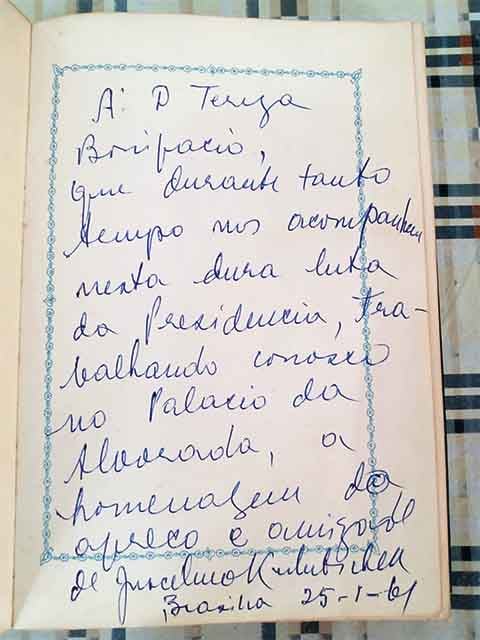 A: D Tereza
Bonifacio,
que durante tanto
tempo nos acompanhou
nesta dura luta
da Presidencia, tra-
balhando conosco
no Palacio da
Alvorada, a
homenagem da
apreço e amizade
de Juscelino Kubitschek
Brasilia 25-1-61